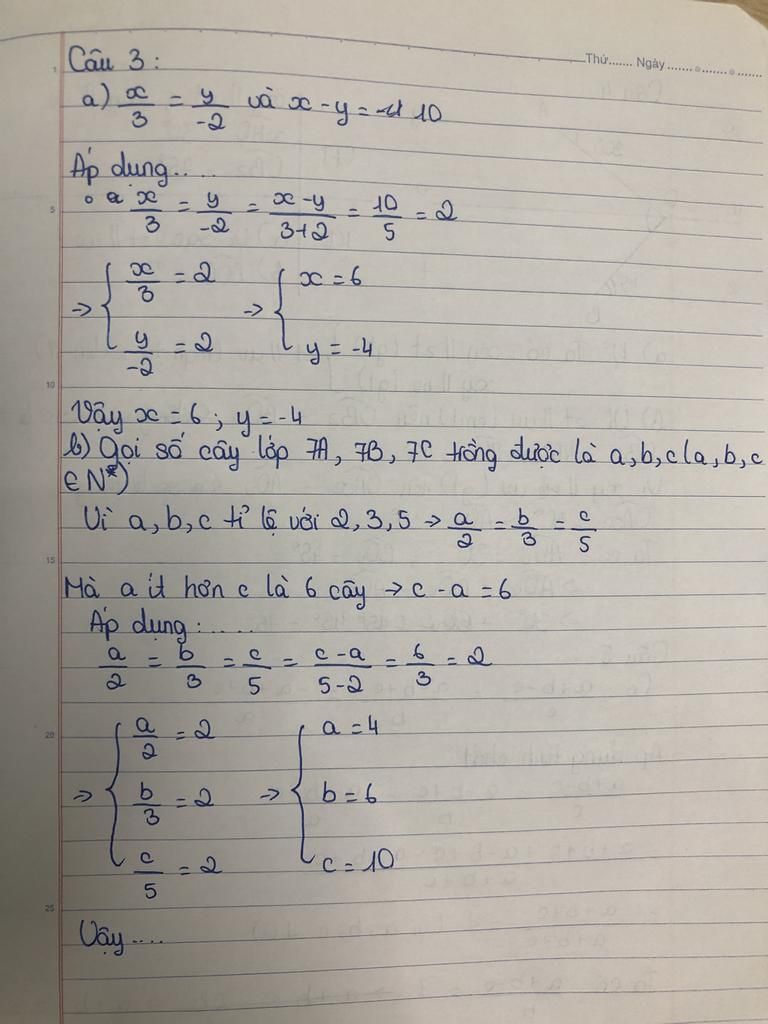 Thứ....... Ngày .......o.......o.......
Câu 3 :
a) x/3 = y/-2 và x - y = 10
Áp dụng....
x/3 = y/-2 = x-y/3+2 = 10/5 = 2
→ { x/3 = 2 → { x = 6
y/-2 = 2 y = -4
Vậy x = 6 ; y = -4
b) Gọi số cây lớp 7A, 7B, 7C trồng được là a, b, c (a, b, c
∈ N*)
Vì a, b, c tỉ lệ với 2, 3, 5 → a/2 = b/3 = c/5
Mà a ít hơn c là 6 cây → c - a = 6
Áp dụng : .....
a/2 = b/3 = c/5 = c-a/5-2 = 6/3 = 2
a/2 = 2 a = 4
→ { b/3 = 2 → { b = 6
c/5 = 2 c = 10
Vậy....
5
10
15
20
25